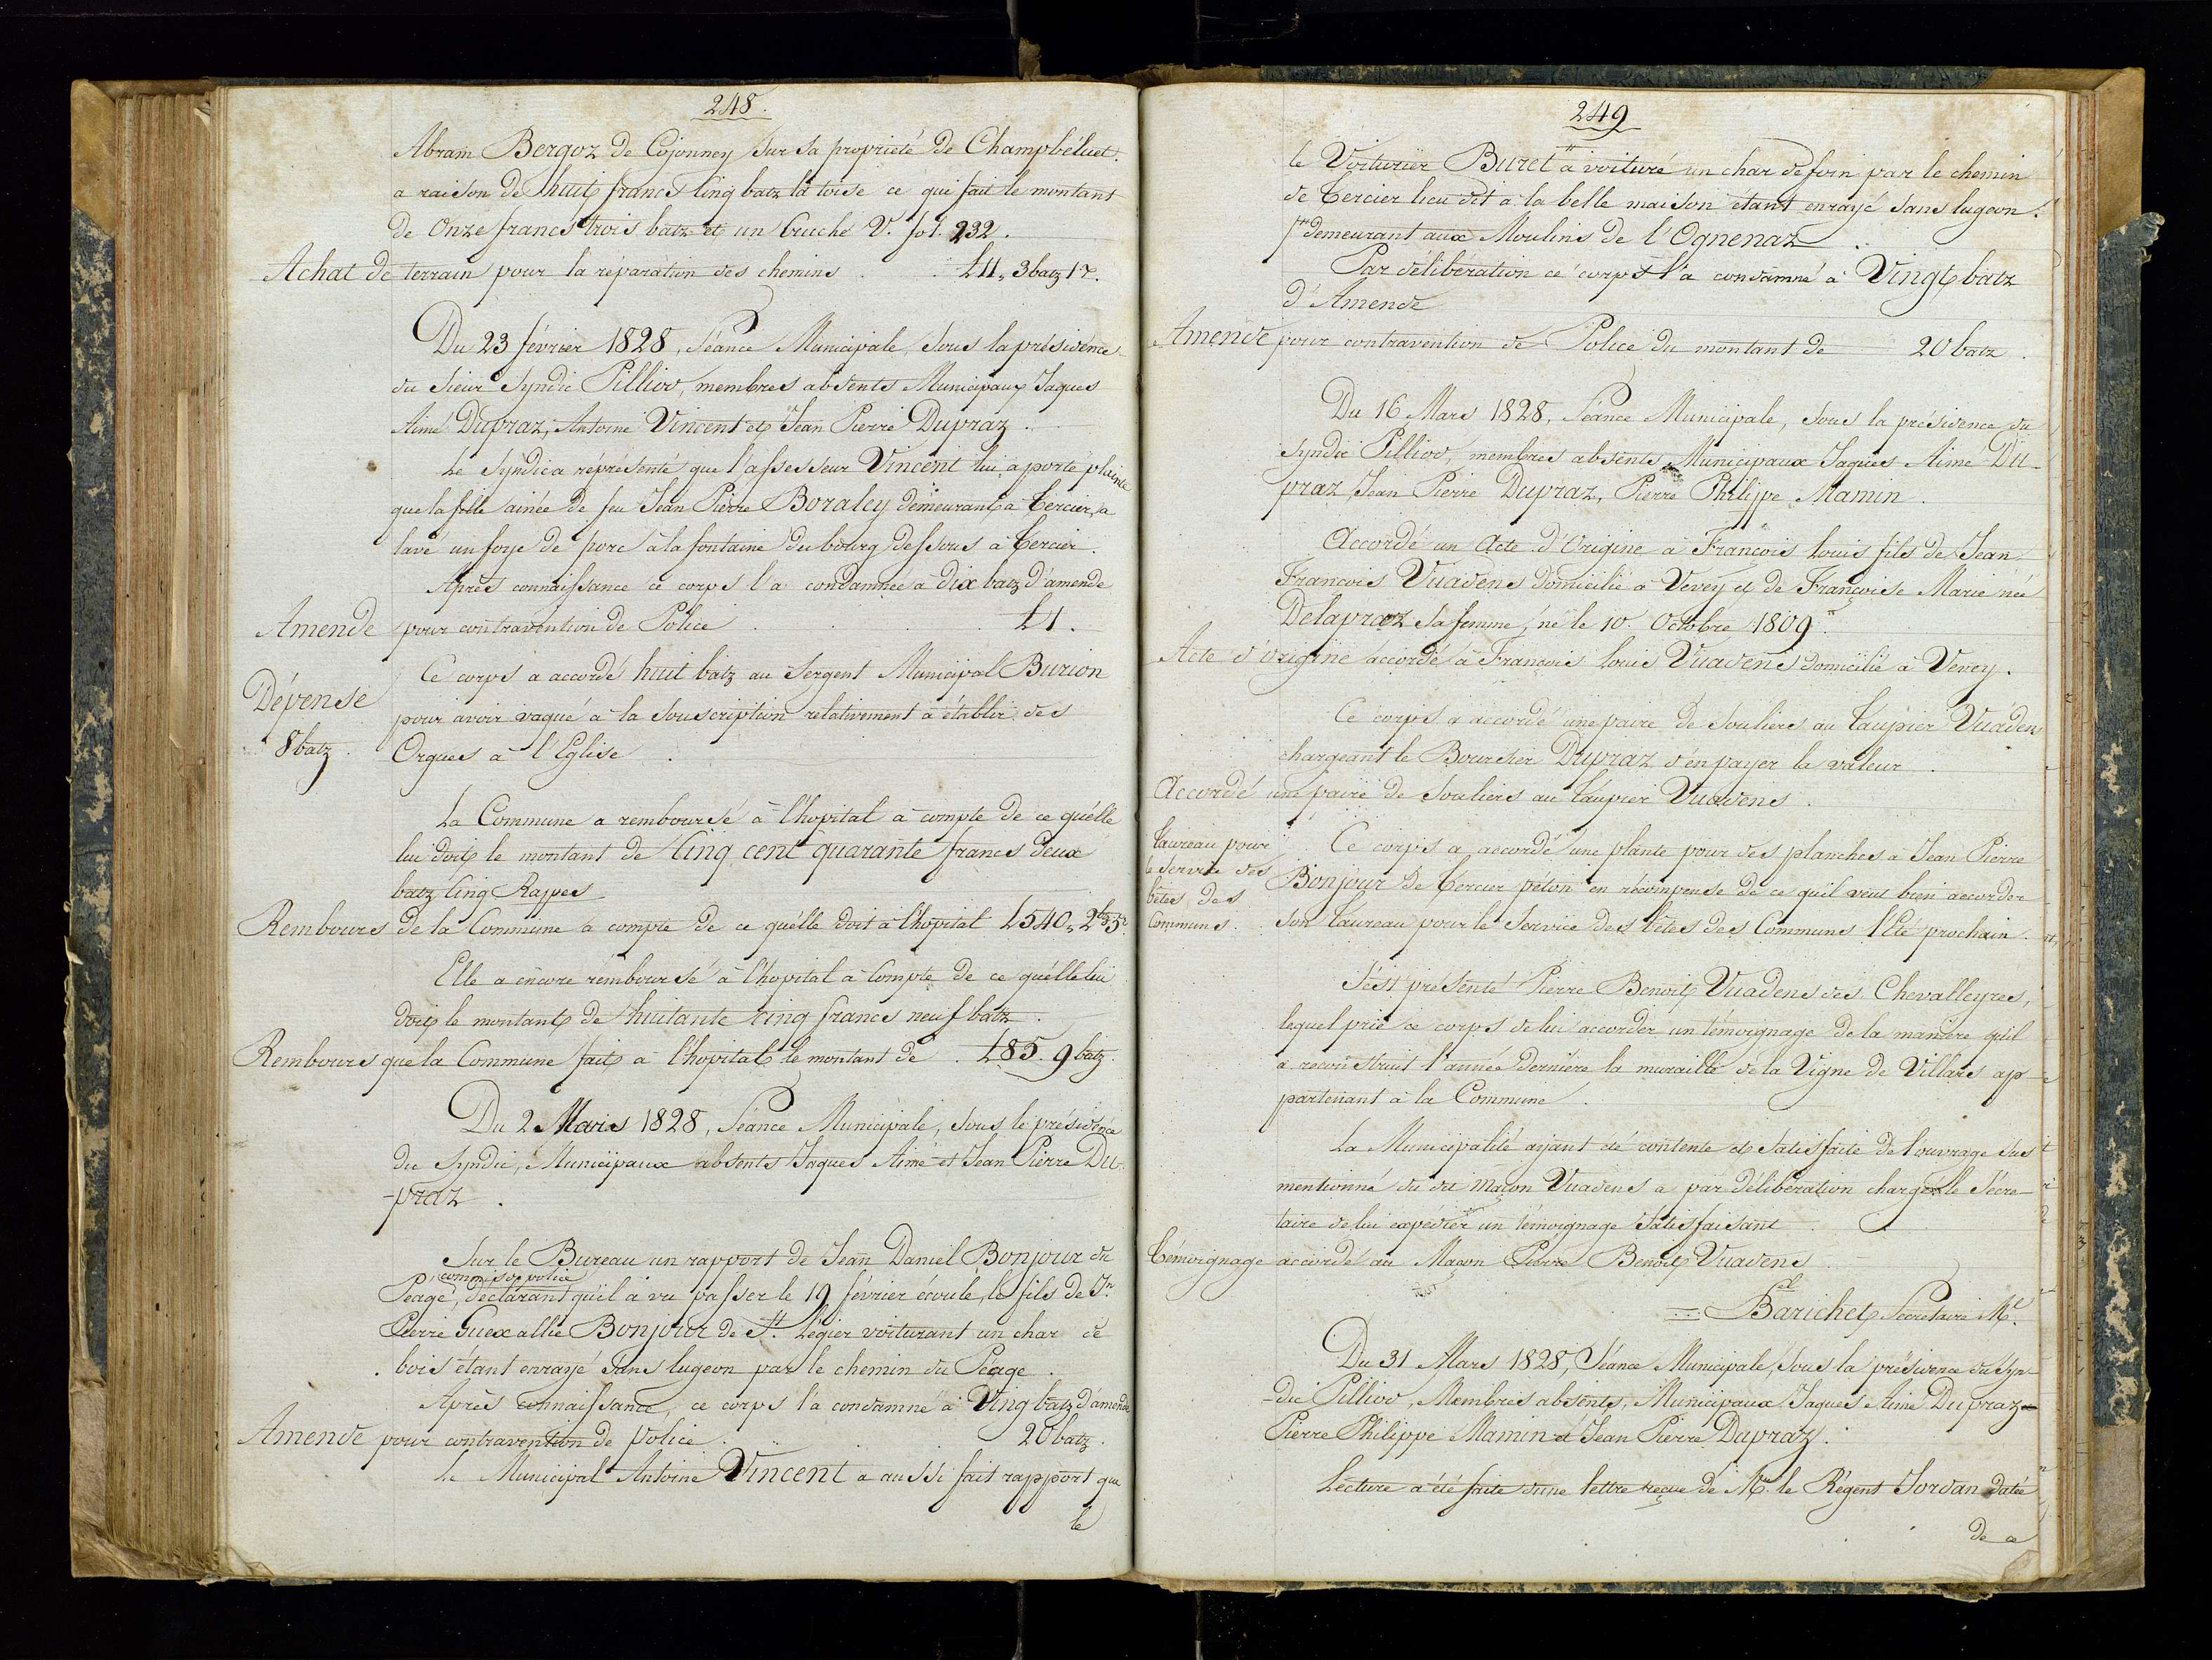 248.
Abram Bergoz de Cojonney sur sa propriété de Champbéluet.
a raison de huit francs cinq batz la toise ce qui fait le montant
de Onze francs trois batz et un cruche V. fol. 232.
Achat de terrain pour la réparation des chemins . . L 11,, 3 batz 1 r.
Du 23 février 1828, Séance Municipale, sous la présidence
du sieur Syndic Pilliod, membres absents Municipaux Jaques
Aimé Dupraz, Antoine Vincent et Jean Pierre Dupraz.
Le Syndic a réprésenté que l'assesseur Vincent lui a porté plainte
que la fille ainée de feu Jean Pierre Boraley demeurant à Cercier, a
lavé un foye de porc à la fontaine du bourg dessous à Cercier.
Après connaissance ce corps l'a condamnée à dix batz d'amende
Amende pour contravention de Police . . . L 1.
Ce corps a accordé huit batz au Sergent Municipal Burion
Dépense pour avoir vaqué à la souscription relativement à établir des
8 batz. Orgues à l'Eglise .
La Commune a remboursé à l'hopital à compte de ce qu'elle
lui doit le montant de Cinq cent quarante francs deux
batz Cinq Rappes
Rembours de la Commune à compte de ce qu'elle doit à l'hopital L 540,, 2 bz 5 r.
Elle a encore remboursé à l'hopital à Compte de ce qu'elle lui
doit le montant de huitante cinq francs neuf batz.
Rembours que la Commune fait à l'hopital le montant de . L 85. 9 batz.
Du 2 Mars 1828, Séance Municipale, sous le présidence
du Syndic, Municipaux absents Jaques Aimé et Jean Pierre Du-
-praz .
Sur le Bureau un rapport de Jean Daniel Bonjour du
commis de police
Péage, déclarant qu'il a vu passer le 19 février écoulé, le fils de Jn
Pierre Guex allié Bonjour de St. Légier voiturant un char de
bois étant enrayé sans lugeon par le chemin du Péage .
Après connaissance, ce corps l'a condamné à Vingt batz d'amende
Amende pour contravention de police . . . 20 batz.
Le Municipal Antoine Vincent a aussi fait rapport que
le
249
le Voiturier Buret # a voituré un char de foin par le chemin
de Cercier lieu dit à la belle maison étant enrayé sans lugeon.
# demeurant aux Moulins de l'Ognenaz
Par délibération ce corps l'a condamné à Vingt batz
d'Amende
Amende pour contravention de Police du montant de 20 batz.
Du 16 Mars 1828, Séance Municipale, sous la présidence du
syndic Pilliod, membres absents Municipaux Jaques Aimé Du-
praz Jean Pierre Dupraz, Pierre Philippe Mamin.
Accordé un Acte d'Origine à François Louis fils de Jean
François Vuadens domicilié à Vevey et de Françoise Marie née
Delapraz sa femme, né le 10. Octobre 1809.
Acte d'origine accordé à François Louis Vuadens domicilié à Vevey.
Ce corps a accordé une paire de souliers au Taupier Vuadens
chargeant le Boursier Dupraz d'en payer la valeur .
Accordé une paire de souliers au Taupier Vuadens .
Taureau pour
le service des
bêtes des
Communs.
Ce corps a accordé une plante pour des planches à Jean Pierre
Bonjour de Cercier péton en récompense de ce qu'il veut bien accorder
son Taureau pour le Service des bêtes des Communs l'Eté prochain.
S'est présenté Pierre Benoit Vuadens des Chevalleyres,
lequel prie ce corps de lui accorder un témoignage de la manière qu'il
a reconstruit l'année dernière la muraille de la Vigne de Villars ap-
partenant à la Commune .
La Municipalité ayant été contente et satisfaite de l'ouvrage sus
mentionné du dit maçon Vuadens a par délibération chargé le Sécre-
taire de lui expédier un témoignage satisfaisant .
Témoignage accordé au Maçon Pierre Benoit Vuadens
Barichet Secretaire Ml.
Du 31 Mars 1828, Séance Municipale, sous la présidence du Syn-
-dic Pilliod, Membres absents, Municipaux Jaques Aimé Dupraz
Pierre Philippe Mamin et Jean Pierre Dupraz.
Lecture a été faite d'une lettre reçue de Mr. le Régent Jordan datée
de ce